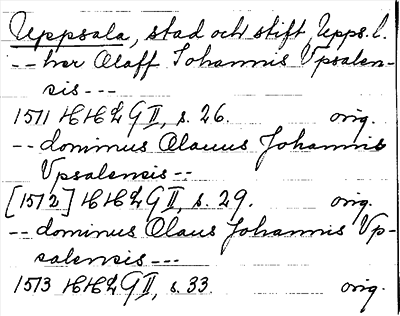 Uppsala, stad och stift, Upps. l.
-- her Olaff Johannis Vpsalen-
sis ---
1511 HH2 G II, s. 26. orig.
-- dominus Olauus Johannis
Vpsalensis --
[1512] HH2 G II, s. 29. orig.
-- dominus Olaus Johannis Vp-
salensis ---
1513 HH2 G II, s. 33. orig.